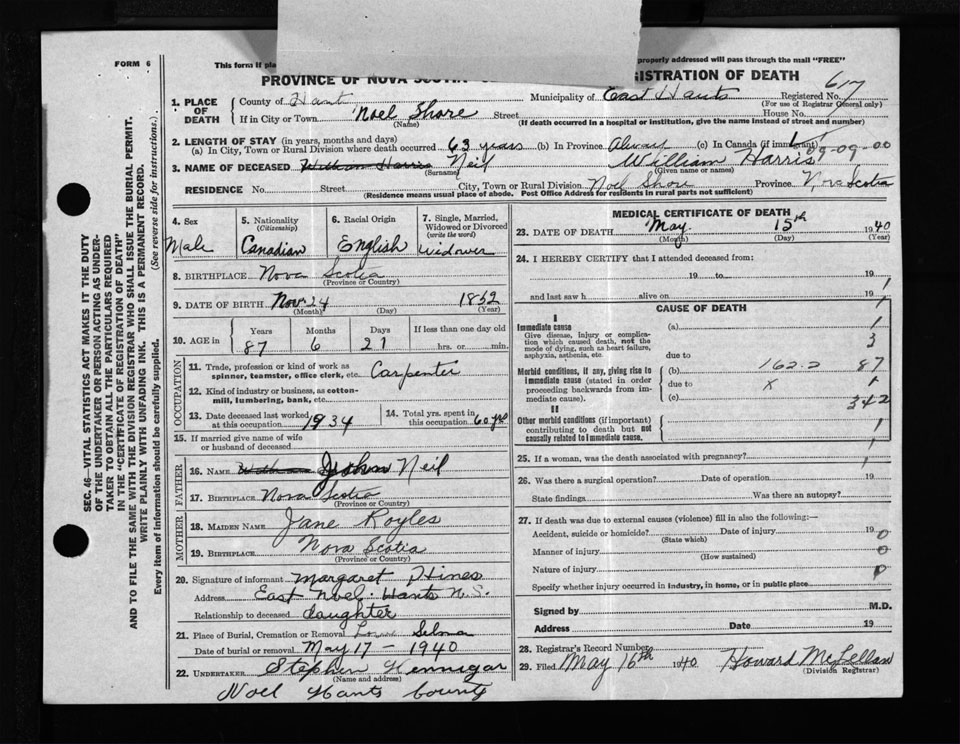 FORM 6
This form if properly addressed will pass through the mail "FREE"
PROVINCE OF NOVA SCOTIA REGISTRATION OF DEATH
Registered No. 617
(For use of Registrar General only)
1. PLACE OF DEATH
County of Hant Municipality of East Hants
If in City or Town Noel Shore Street House No.
(Name) (If death occurred in a hospital or institution, give the name instead of street and number)
2. LENGTH OF STAY (in years, months and days)
(a) In City, Town or Rural Division where death occurred 63 years (b) In Province Always (c) In Canada (if immigrant)
09-09-00
3. NAME OF DECEASED William Harris Neil William Harris
(Surname) (Given name or names)
RESIDENCE No. Street City, Town or Rural Division Noel Shore Province Nova Scotia
(Residence means usual place of abode. Post Office Address for residents in rural parts not sufficient)
4. Sex
Male
5. Nationality
(Citizenship)
Canadian
6. Racial Origin
English
7. Single, Married, Widowed or Divorced
(write the word)
Widower
8. BIRTHPLACE Nova Scotia
(Province or Country)
9. DATE OF BIRTH Nov 24 1852
(Month) (Day) (Year)
10. AGE in
Years Months Days If less than one day old
87 6 21 hrs. or min.
OCCUPATION
11. Trade, profession or kind of work as spinner, teamster, office clerk, etc. Carpenter
12. Kind of industry or business, as cotton-mill, lumbering, bank, etc.
13. Date deceased last worked at this occupation 1934
14. Total yrs. spent in this occupation 60 yrs
15. If married give name of wife or husband of deceased
FATHER
16. NAME John Neil
17. BIRTHPLACE Nova Scotia
(Province or Country)
MOTHER
18. MAIDEN NAME Jane Royles
19. BIRTHPLACE Nova Scotia
(Province or Country)
20. Signature of informant Margaret Hines
Address East Noel. Hants N.S.
Relationship to deceased daughter
21. Place of Burial, Cremation or Removal Selma
Date of burial or removal May 17 - 1940
22. UNDERTAKER Stephen Hennigar
(Name and address)
Noel Hants County
MEDICAL CERTIFICATE OF DEATH
23. DATE OF DEATH May 15th 1940
(Month) (Day) (Year)
24. I HEREBY CERTIFY that I attended deceased from:
19 to 19
and last saw h alive on 19
CAUSE OF DEATH
I
Immediate cause
Give disease, injury or complication which caused death, not the mode of dying, such as heart failure, asphyxia, asthenia, etc.
(a)
due to
Morbid conditions, if any, giving rise to immediate cause (stated in order proceeding backwards from immediate cause).
(b) 162.2 87
due to X
(c) 342
II
Other morbid conditions (if important) contributing to death but not causally related to immediate cause.
25. If a woman, was the death associated with pregnancy?
26. Was there a surgical operation? Date of operation 19
State findings Was there an autopsy?
27. If death was due to external causes (violence) fill in also the following:—
Accident, suicide or homicide? Date of injury 19
(State which)
Manner of injury
(How sustained)
Nature of injury
Specify whether injury occurred in industry, in home, or in public place
Signed by M.D.
Address Date 19
28. Registrar's Record Number
29. Filed May 16th 1940 Howard McLellan
(Division Registrar)
SEC. 46—VITAL STATISTICS ACT MAKES IT THE DUTY
OF THE UNDERTAKER OR PERSON ACTING AS UNDER-
TAKER TO OBTAIN ALL THE PARTICULARS REQUIRED
IN THE "CERTIFICATE OF REGISTRATION OF DEATH"
AND TO FILE THE SAME WITH THE DIVISION REGISTRAR WHO SHALL ISSUE THE BURIAL PERMIT.
WRITE PLAINLY WITH UNFADING INK. THIS IS A PERMANENT RECORD.
Every item of information should be carefully supplied. (See reverse side for instructions.)